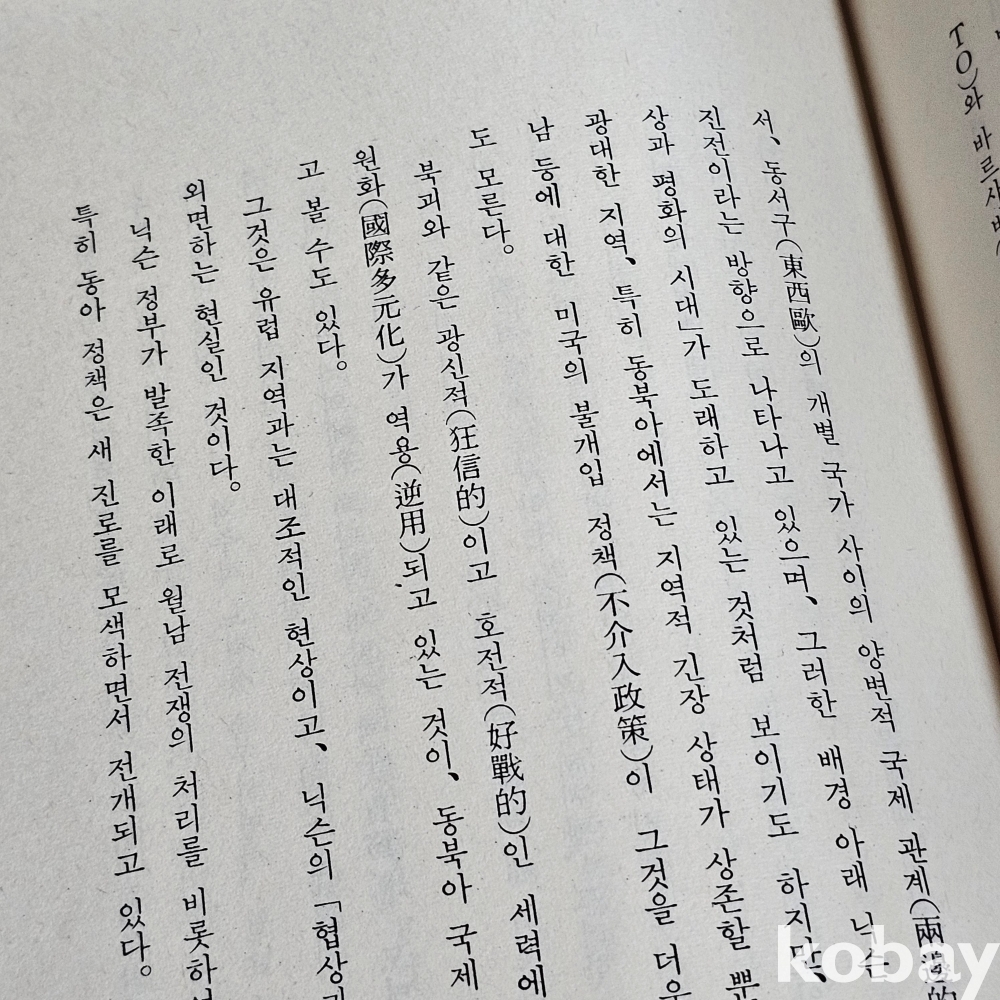 TO)와 바르샤바
서、동서구(東西歐)의 개별 국가 사이의 양변적 국제 관계(兩邊的
진전이라는 방향으로 나타나고 있으며、그러한 배경 아래 닉슨
상과 평화의 시대」가 도래하고 있는 것처럼 보이기도 하지만、
광대한 지역、특히 동북아에서는 지역적 긴장 상태가 상존할 뿐
남 등에 대한 미국의 불개입 정책(不介入政策)이 그것을 더욱
도 모른다。
북괴와 같은 광신적(狂信的)이고 호전적(好戰的)인 세력에
원화(國際多元化)가 역용(逆用)되고 있는 것이、동북아 국제
고 볼 수도 있다。
그것은 유럽 지역과는 대조적인 현상이고、닉슨의 「협상과
외면하는 현실인 것이다。
닉슨 정부가 발족한 이래로 월남 전쟁의 처리를 비롯하여
특히 동아 정책은 새 진로를 모색하면서 전개되고 있다。
kobay